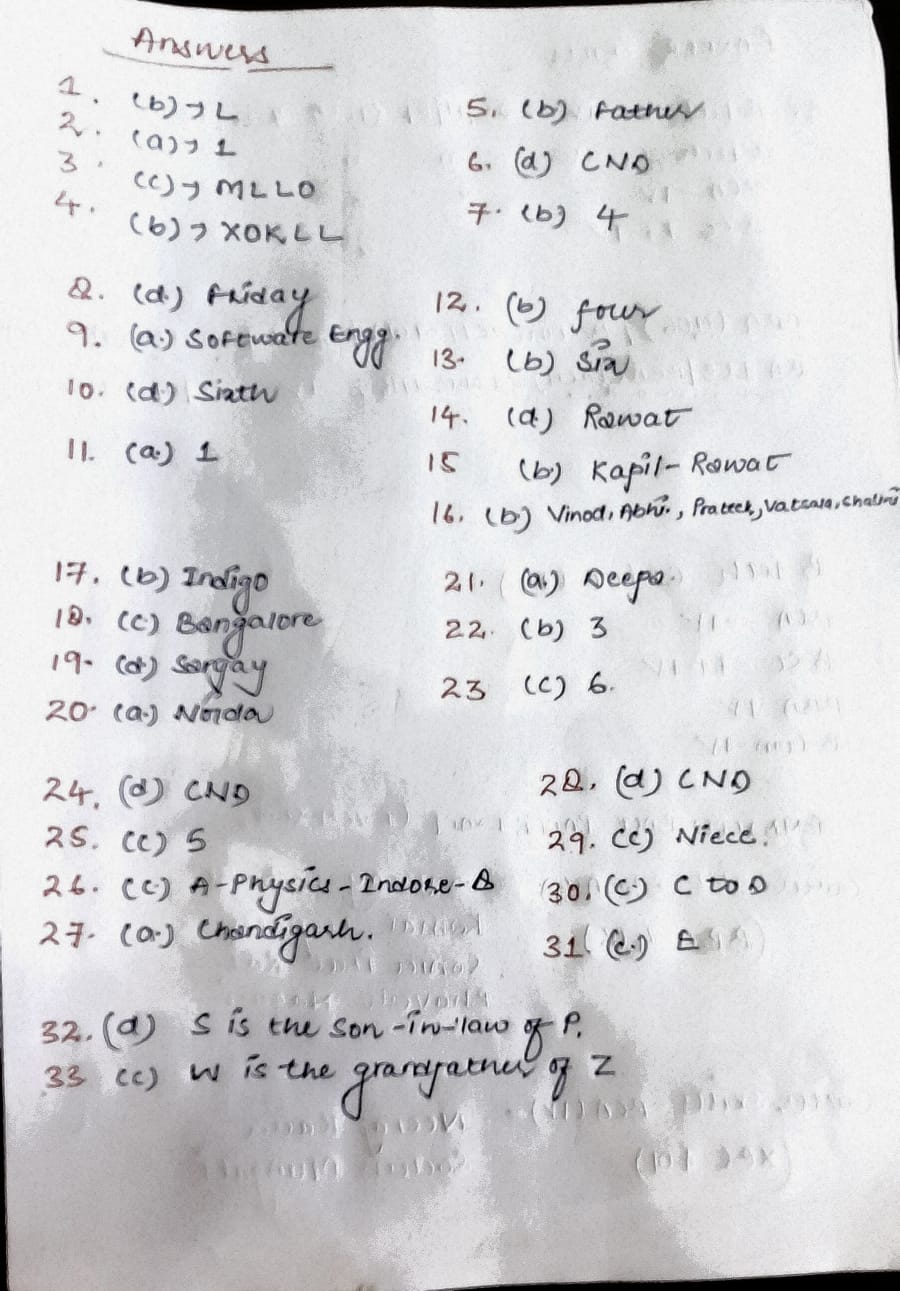 Answers
1. (b) → L
2. (a) → 1
3. (c) → MLLO
4. (b) → XOKLL
5. (b) Father
6. (d) CND
7. (b) 4
8. (d.) Friday
9. (a.) Software Engg.
10. (d.) Sixth
11. (a.) 1
12. (b) four
13. (b) Six
14. (d.) Rawat
15 (b.) Kapil - Rawat
16. (b.) Vinod, Abhi., Prateek, Vatsala, Shalini
17. (b) Indigo
18. (c) Bangalore
19. (d)
20. (a.) Noida
21. (a.) Deepa.
22. (b) 3
23 (c) 6.
24. (d) CND
25. (c) 5
26. (c.) A - Physics - Indore - B
27. (a.) Chandigarh.
28. (d) CND
29. (c) Niece.
30. (c.) C to D
31. (c.) E
32. (d) S is the son-in-law of P.
33 (c) W is the grandfather of Z